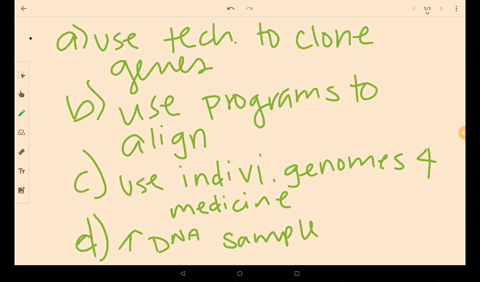 a) use tech. to clone
genes
b) use programs to
align
c) use indivi. genomes 4
medicine
d) ↑ DNA sample
1/1
Tr